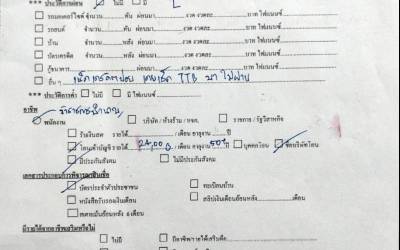 *** ประวัติการผ่อน ☐ ไม่มี ☑ มี
☐ รถมอเตอร์ไซค์ จำนวน.......คัน ผ่อนมา.......งวด งวดละ.......บาท ไฟแนนซ์.......
☐ รถยนต์ จำนวน.......คัน ผ่อนมา.......งวด งวดละ.......บาท ไฟแนนซ์.......
☐ บ้าน จำนวน.......หลัง ผ่อนมา.......งวด งวดละ.......บาท ไฟแนนซ์.......
☐ บัตรเครดิต จำนวน.......ใบ ผ่อนมา.......งวด งวดละ.......บาท ไฟแนนซ์.......
☐ กู้ธนาคาร ผ่อนมา.......งวด งวดละ.......บาท ไฟแนนซ์.......
☐ อื่น ๆ TTB มา ไม่ผ่าน
*** ประวัติการค้ำ ☐ ไม่มี ☐ มี ไฟแนนซ์.......
อาชีพ
พนักงาน ☐ บริษัท / ห้างร้าน / หจก. ☐ ราชการ / รัฐวิสาหกิจ
☐ รับเงินสด รายได้......./เดือน อายุงาน.......ปี
☑ โอนเข้าบัญชี รายได้ 24,000 /เดือน อายุงาน 5 ปี ☐ บุคคลโอน ☑ บริษัทโอน
☑ มีประกันสังคม ☐ ไม่มีประกันสังคม
เอกสารประกอบการพิจารณาสินเชื่อ
☑ บัตรประจำตัวประชาชน ☐ ทะเบียนบ้าน
☐ หนังสือรับรองเงินเดือน ☐ สลิปเงินเดือนย้อนหลัง.......เดือน
☐ สเตทเม้นย้อนหลัง 6 เดือน
มีรายได้จากอาชีพเสริมหรือไม่
☐ ไม่มี ☐ มีอาชีพ/รายได้เสริมเพื่อ